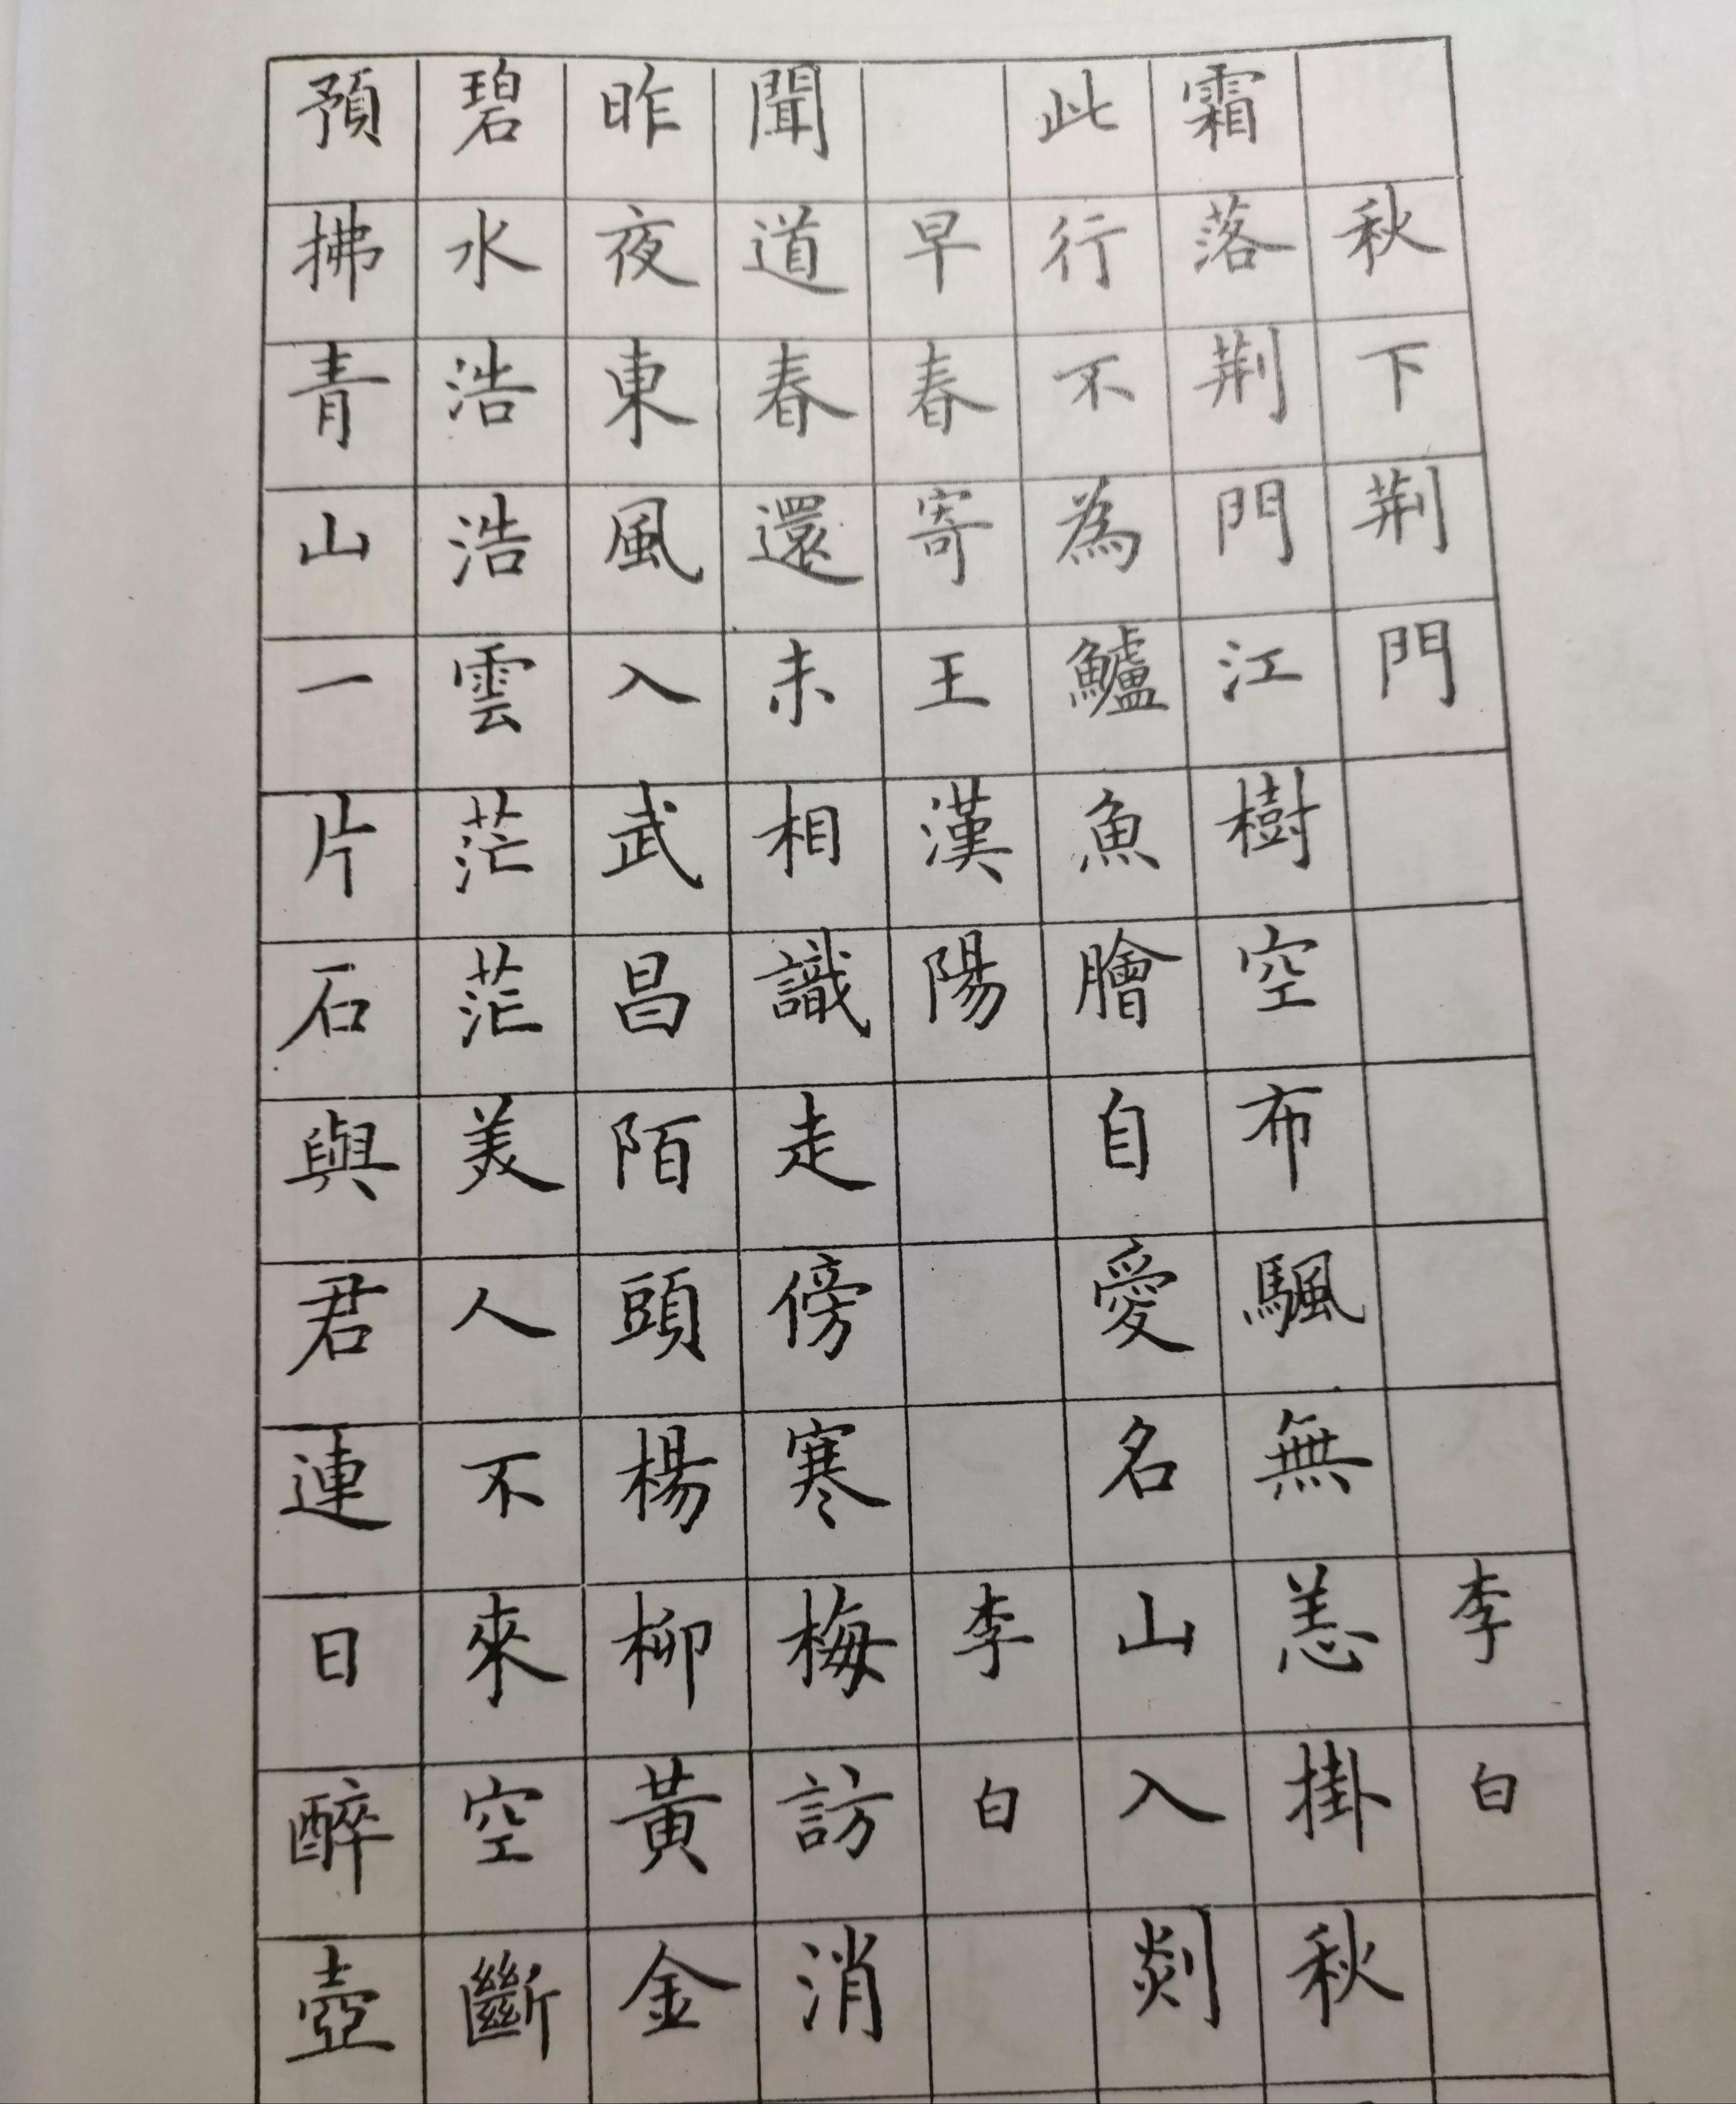 秋下荆門李白
霜落荆門江樹空布颿無恙掛秋
此行不為鱸魚膾自愛名山入剡
早春寄王漢陽李白
聞道春還未相識走傍寒梅訪消
昨夜東風入武昌陌頭楊柳黃金
碧水浩浩雲茫茫美人不來空斷
預拂青山一片石與君連日醉壺